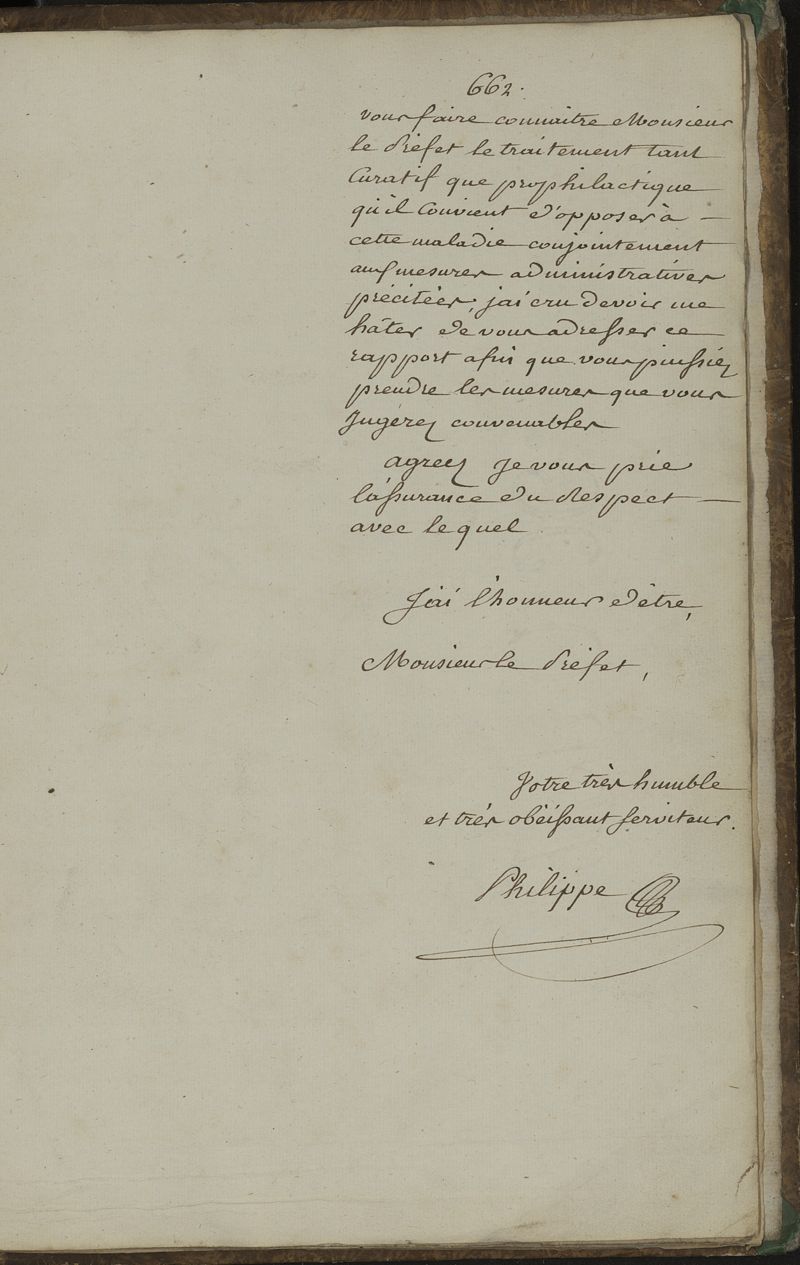 662.
vous faire connaitre Monsieur
le Préfet le traitement tant
Curatif que prophilactique
qu'il Convient d'opposer à —
cette maladie conjointement
aux mesures administratives
précitées, j'ai cru devoir me
hâter de vous adresser ce
rapport afin que vous puissiez
prendre les mesures que vous
Jugerez convenables
agreez Je vous prie
l'assurance du Respect —
avec le quel
J'ai l'honneur d'être,
Monsieur le Préfet,
Votre très humble
et très obéissant serviteur.
Philippe